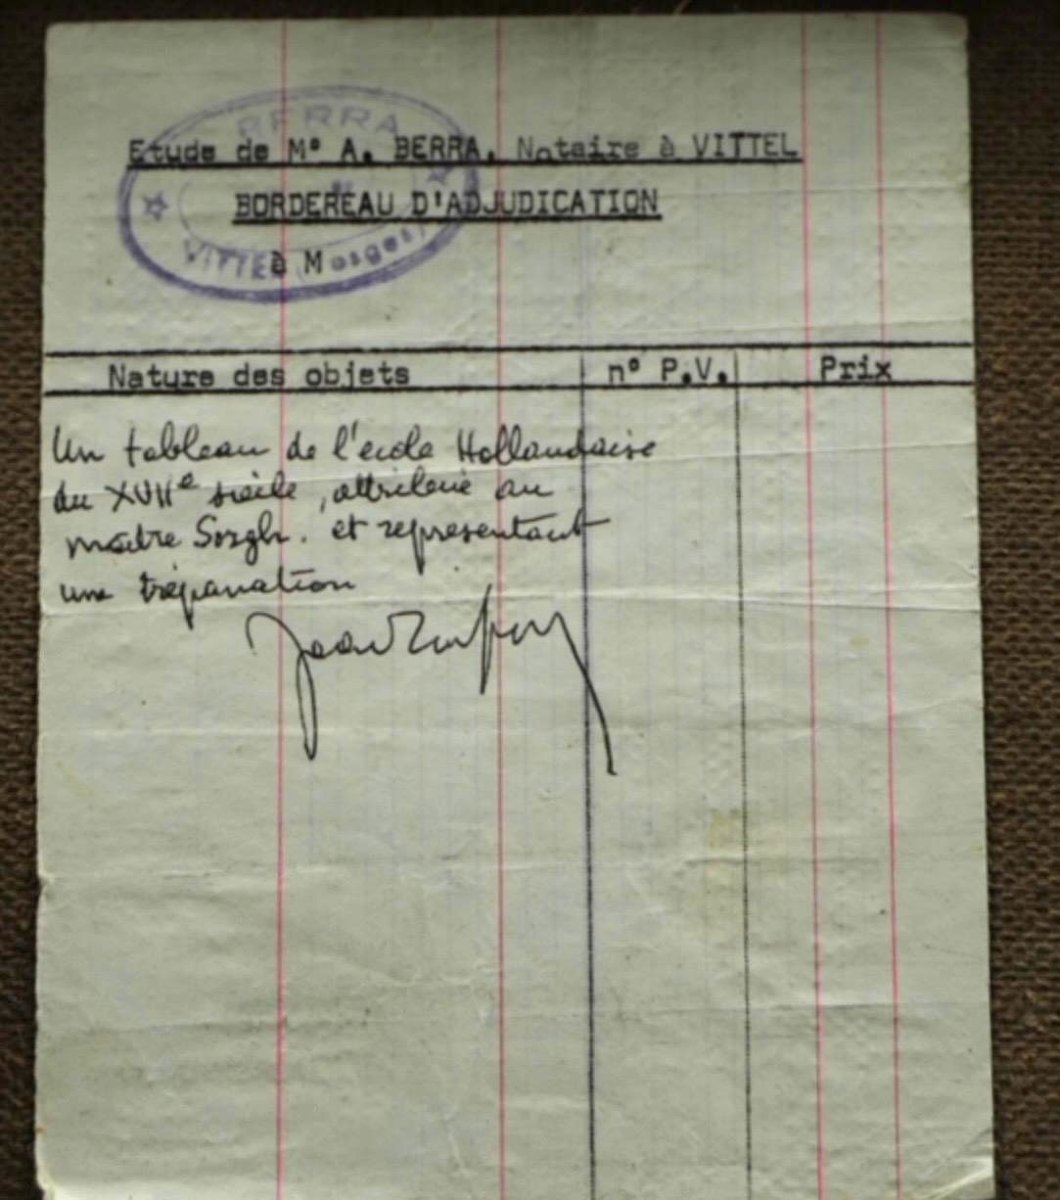 BERRA
Etude de Me A. BERRA, Notaire à VITTEL
BORDEREAU D'ADJUDICATION
VITTEL (Vosges)
à M
Nature des objets n° P.V. Prix
Un tableau de l'école Hollandaise
du XVIIe siècle, attribué au
maître Sorgh. et representant
une trépanation
Jean